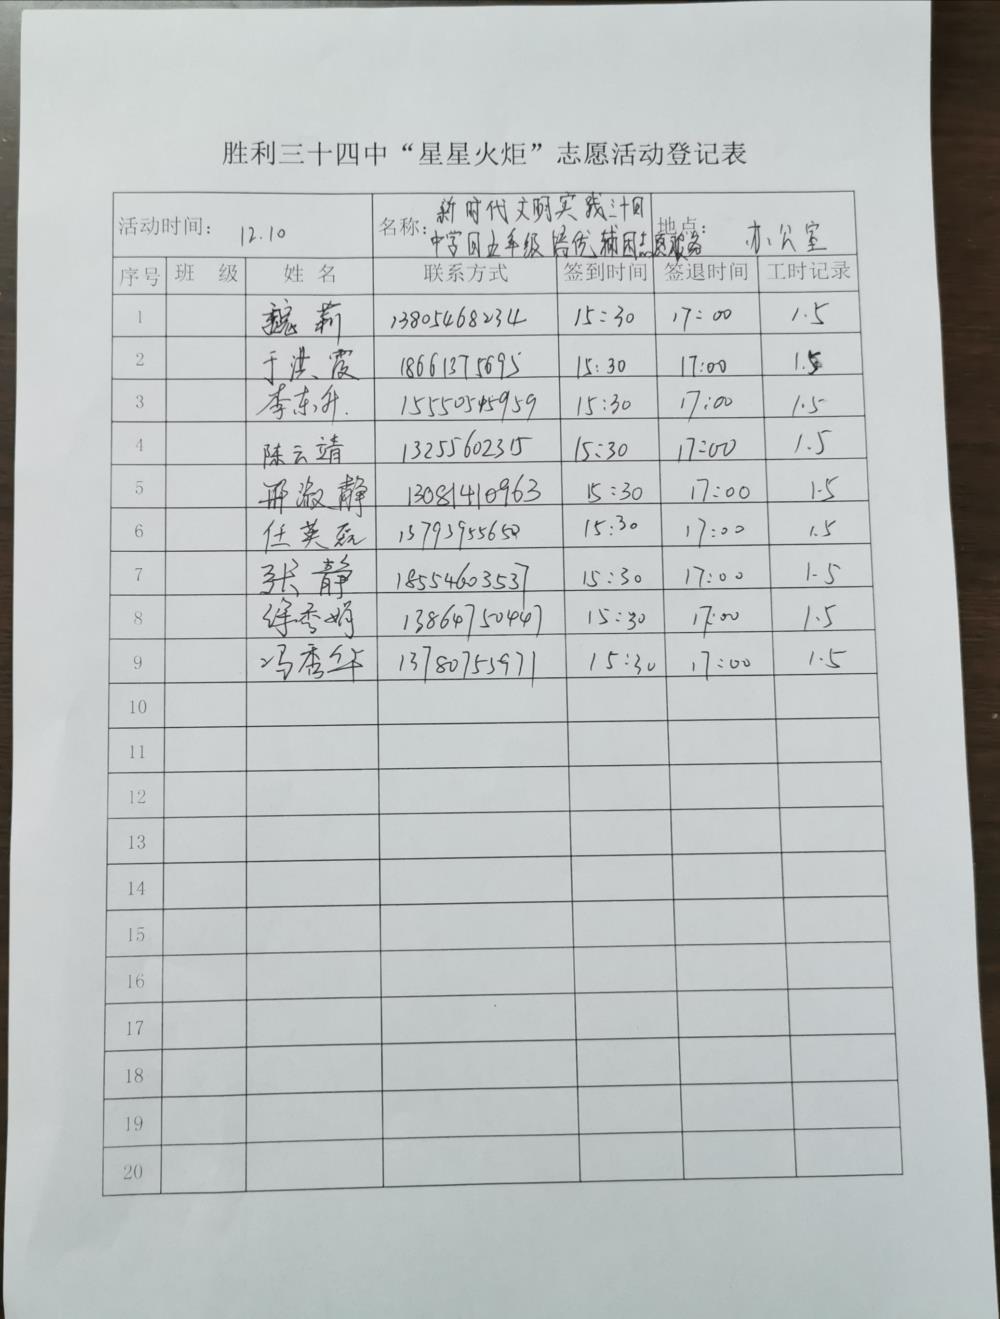 胜利三十四中“星星火炬”志愿活动登记表
活动时间: 12.10 名称: 新时代文明实践三十四中学四五年级培优辅困志愿服务 地点: 办公室
序号 班 级 姓 名 联系方式 签到时间 签退时间 工时记录
1 魏莉 13805468234 15:30 17:00 1.5
2 于洪霞 18661375695 15:30 17:00 1.5
3 李东升 15550545959 15:30 17:00 1.5
4 陈云靖 13255602315 15:30 17:00 1.5
5 淑静 13081410963 15:30 17:00 1.5
6 任英 13793955650 15:30 17:00 1.5
7 张静 18554603537 15:30 17:00 1.5
8 徐秀娟 13864750447 15:30 17:00 1.5
9 冯秀华 13780753971 15:30 17:00 1.5
10
11
12
13
14
15
16
17
18
19
20